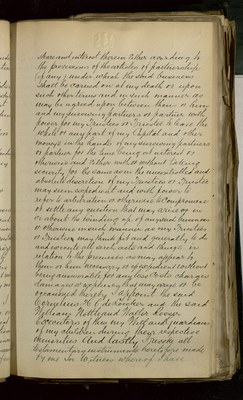 share and interest therein either according to
the provisions of the articles of partnership
(if any) under which the said business
shall be carried on at my death or upon
such other terms and in such manner as
may be agreed upon between them or him
and my surviving partners or partner with
power for my Trustees or Trustee to leave the
whole or any part of my Capital and other
moneys in the hands of my surviving partners
or partner for the time being at interest or
otherwise and either with or without taking
security for the same as in the uncontrolled and
absolute discretion of my Trustees or Trustee
may seem expedient and with power to
refer to arbitration or otherwise to compromise
or settle any question that may arise on in
or about the winding up of my said business
or otherwise in such manner as my Trustees
or Trustee may think fit and generally to do
and execute all such acts and things in
relation to the premises as may appear to
them or him necessary or expedient without
being answerable for any loss
damages or which may arise or be
occasioned thereby I appoint the said
Cornelius
William and Walter
Executors of this my Will and guardians
of my children during their respective
minorities And lastly I revoke all
testamentary instruments heretofore made
by me In witness whereof I have